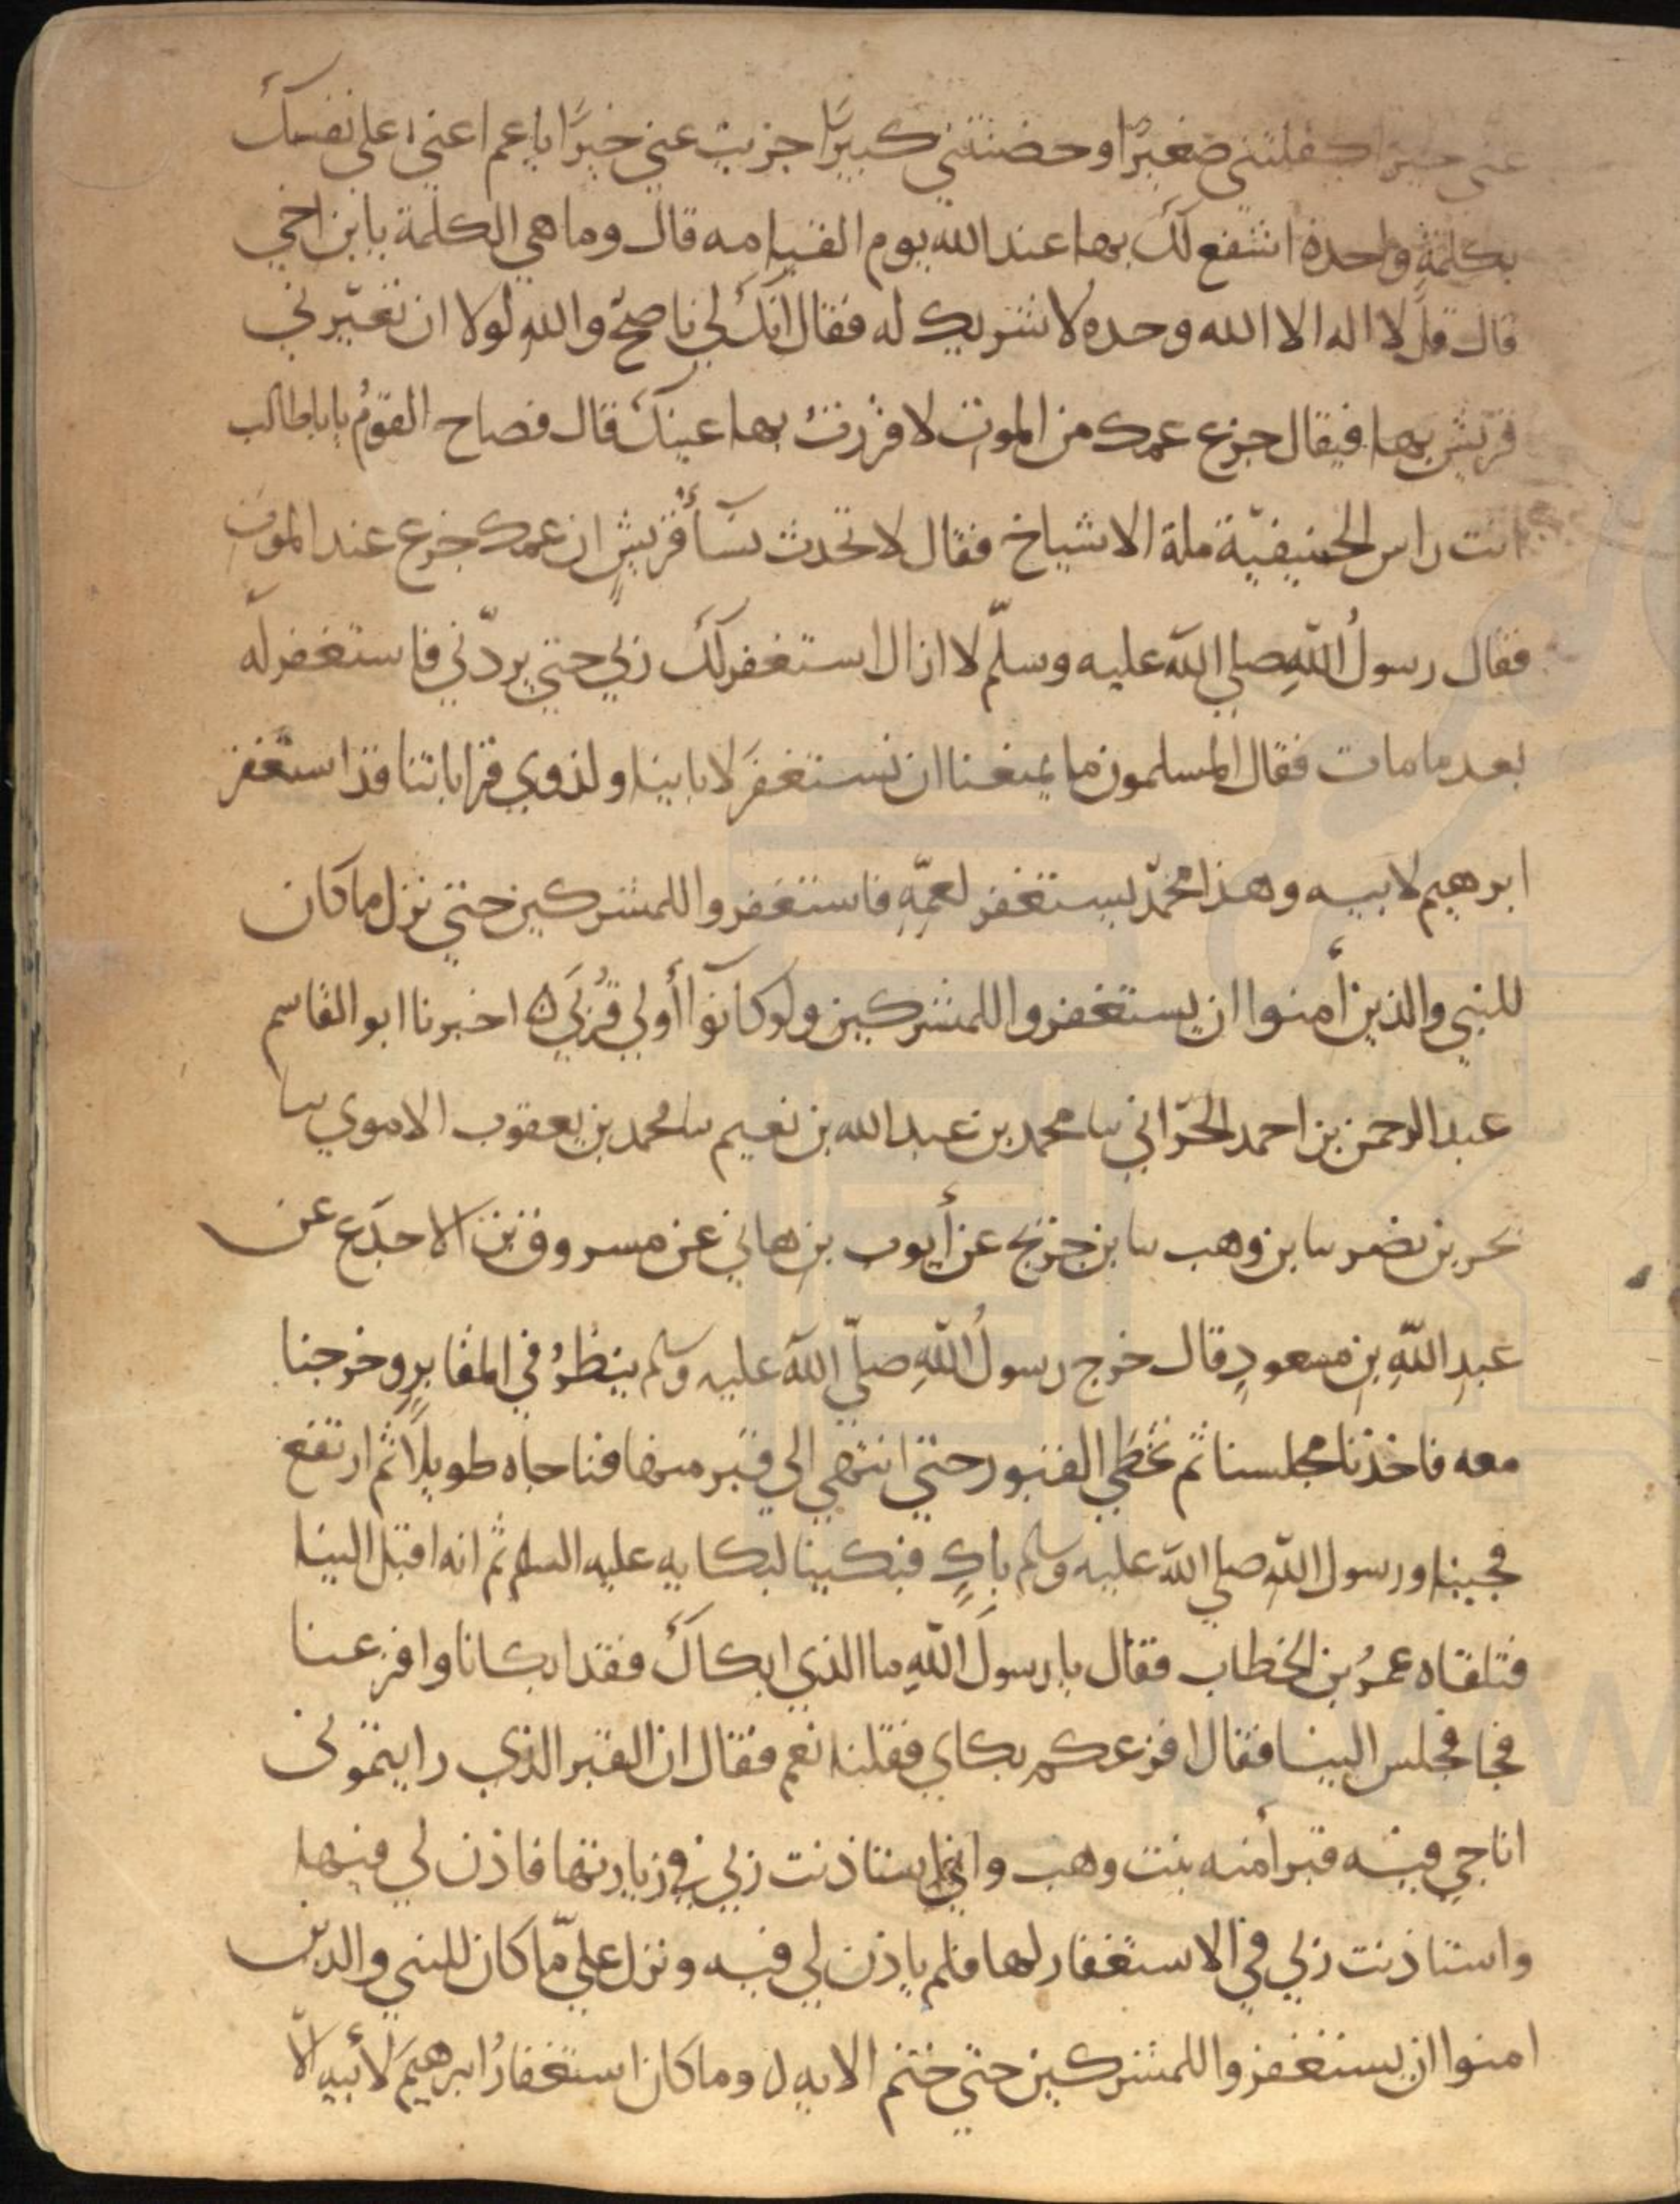 عني خيرا كفلتني صغيرًا وحضنتني كبيرًا جزيت عني خيرًا يا عم اعني على نفسك
بكلمةٍ واحدة اشفع لك بها عند الله يوم القيامه قال وما هي الكلمة يا بن اخي
قال قل لا اله الا الله وحده لا شريك له فقال انك لي ناصحٌ والله لولا ان تعيّرني
قريش بها فيقال جزع عمك من الموت لاقررتُ بها عينك قال فصاح القومُ يابا طالب
انت راس الحنيفيّة ملة الاشياخ فقال لا تحدث نسآءُ قريشٍ ان عمك جزع عند الموت
فقال رسولُ اللهِ صلي الله عليه وسلّم لا ازال استغفر لك ربي حتى يردّني فاستغفر له
بعد ما مات فقال المسلمون ما يمنعنا ان نستغفرَ لاباينا ولذوي قراباتنا قد استغفر
ابرهيم لابيه وهذا محمّد يستغفر لعمّهِ فاستغفروا للمشركين حتى نزل ما كان
للنبي والذين أمنوا ان يستغفروا للمشركين ولو كانوآ أولي قُربَي ه اخبرنا ابو القاسم
عبد الرحمن بن احمد الحرّاني سا محمد بن عبد الله بن نعيم سا محمد بن يعقوب الاموي سا
بحر بن نصر سا بن وهب سا بن جريج عن أيوب بن هاني عن مسروق بن الاجدَع عن
عبدِ اللهِ بنِ مسعودٍ قال خرج رسولُ اللهِ صلّي الله عليه وسلم ينظُرُ في المقابرِ وخرجنا
معه فاخذنا مجلسنا ثم تخطي القبور حتى انتهي الي قبر منها فناجاه طويلًا ثم ارتفع
فجينا ورسول الله صلي الله عليه وسلم باكٍ فبكينا لبكايه عليه السلم ثم انه اقبل الينا
فتلقاه عمرُ بن الخطاب فقال يا رسولَ اللهِ ما الذي ابكاكَ فقد ابكانا وافزعنا
فجا فجلس الينا فقال افزعكم بكاي فقلنا نعم فقال ان القبر الذي رايتموني
اناجي فيه قبر أمنه بنت وهب واني استاذنت ربي في زيارتها فاذن لي فيها
واستاذنت ربي في الاستغفار لها فلم ياذن لي فيه ونزل عليّ ما كان للنبي والذين
امنوا ان يستغفروا للمشركين حتى ختم الايه وما كان استغفارُ ابرهيمَ لأبيه الّا